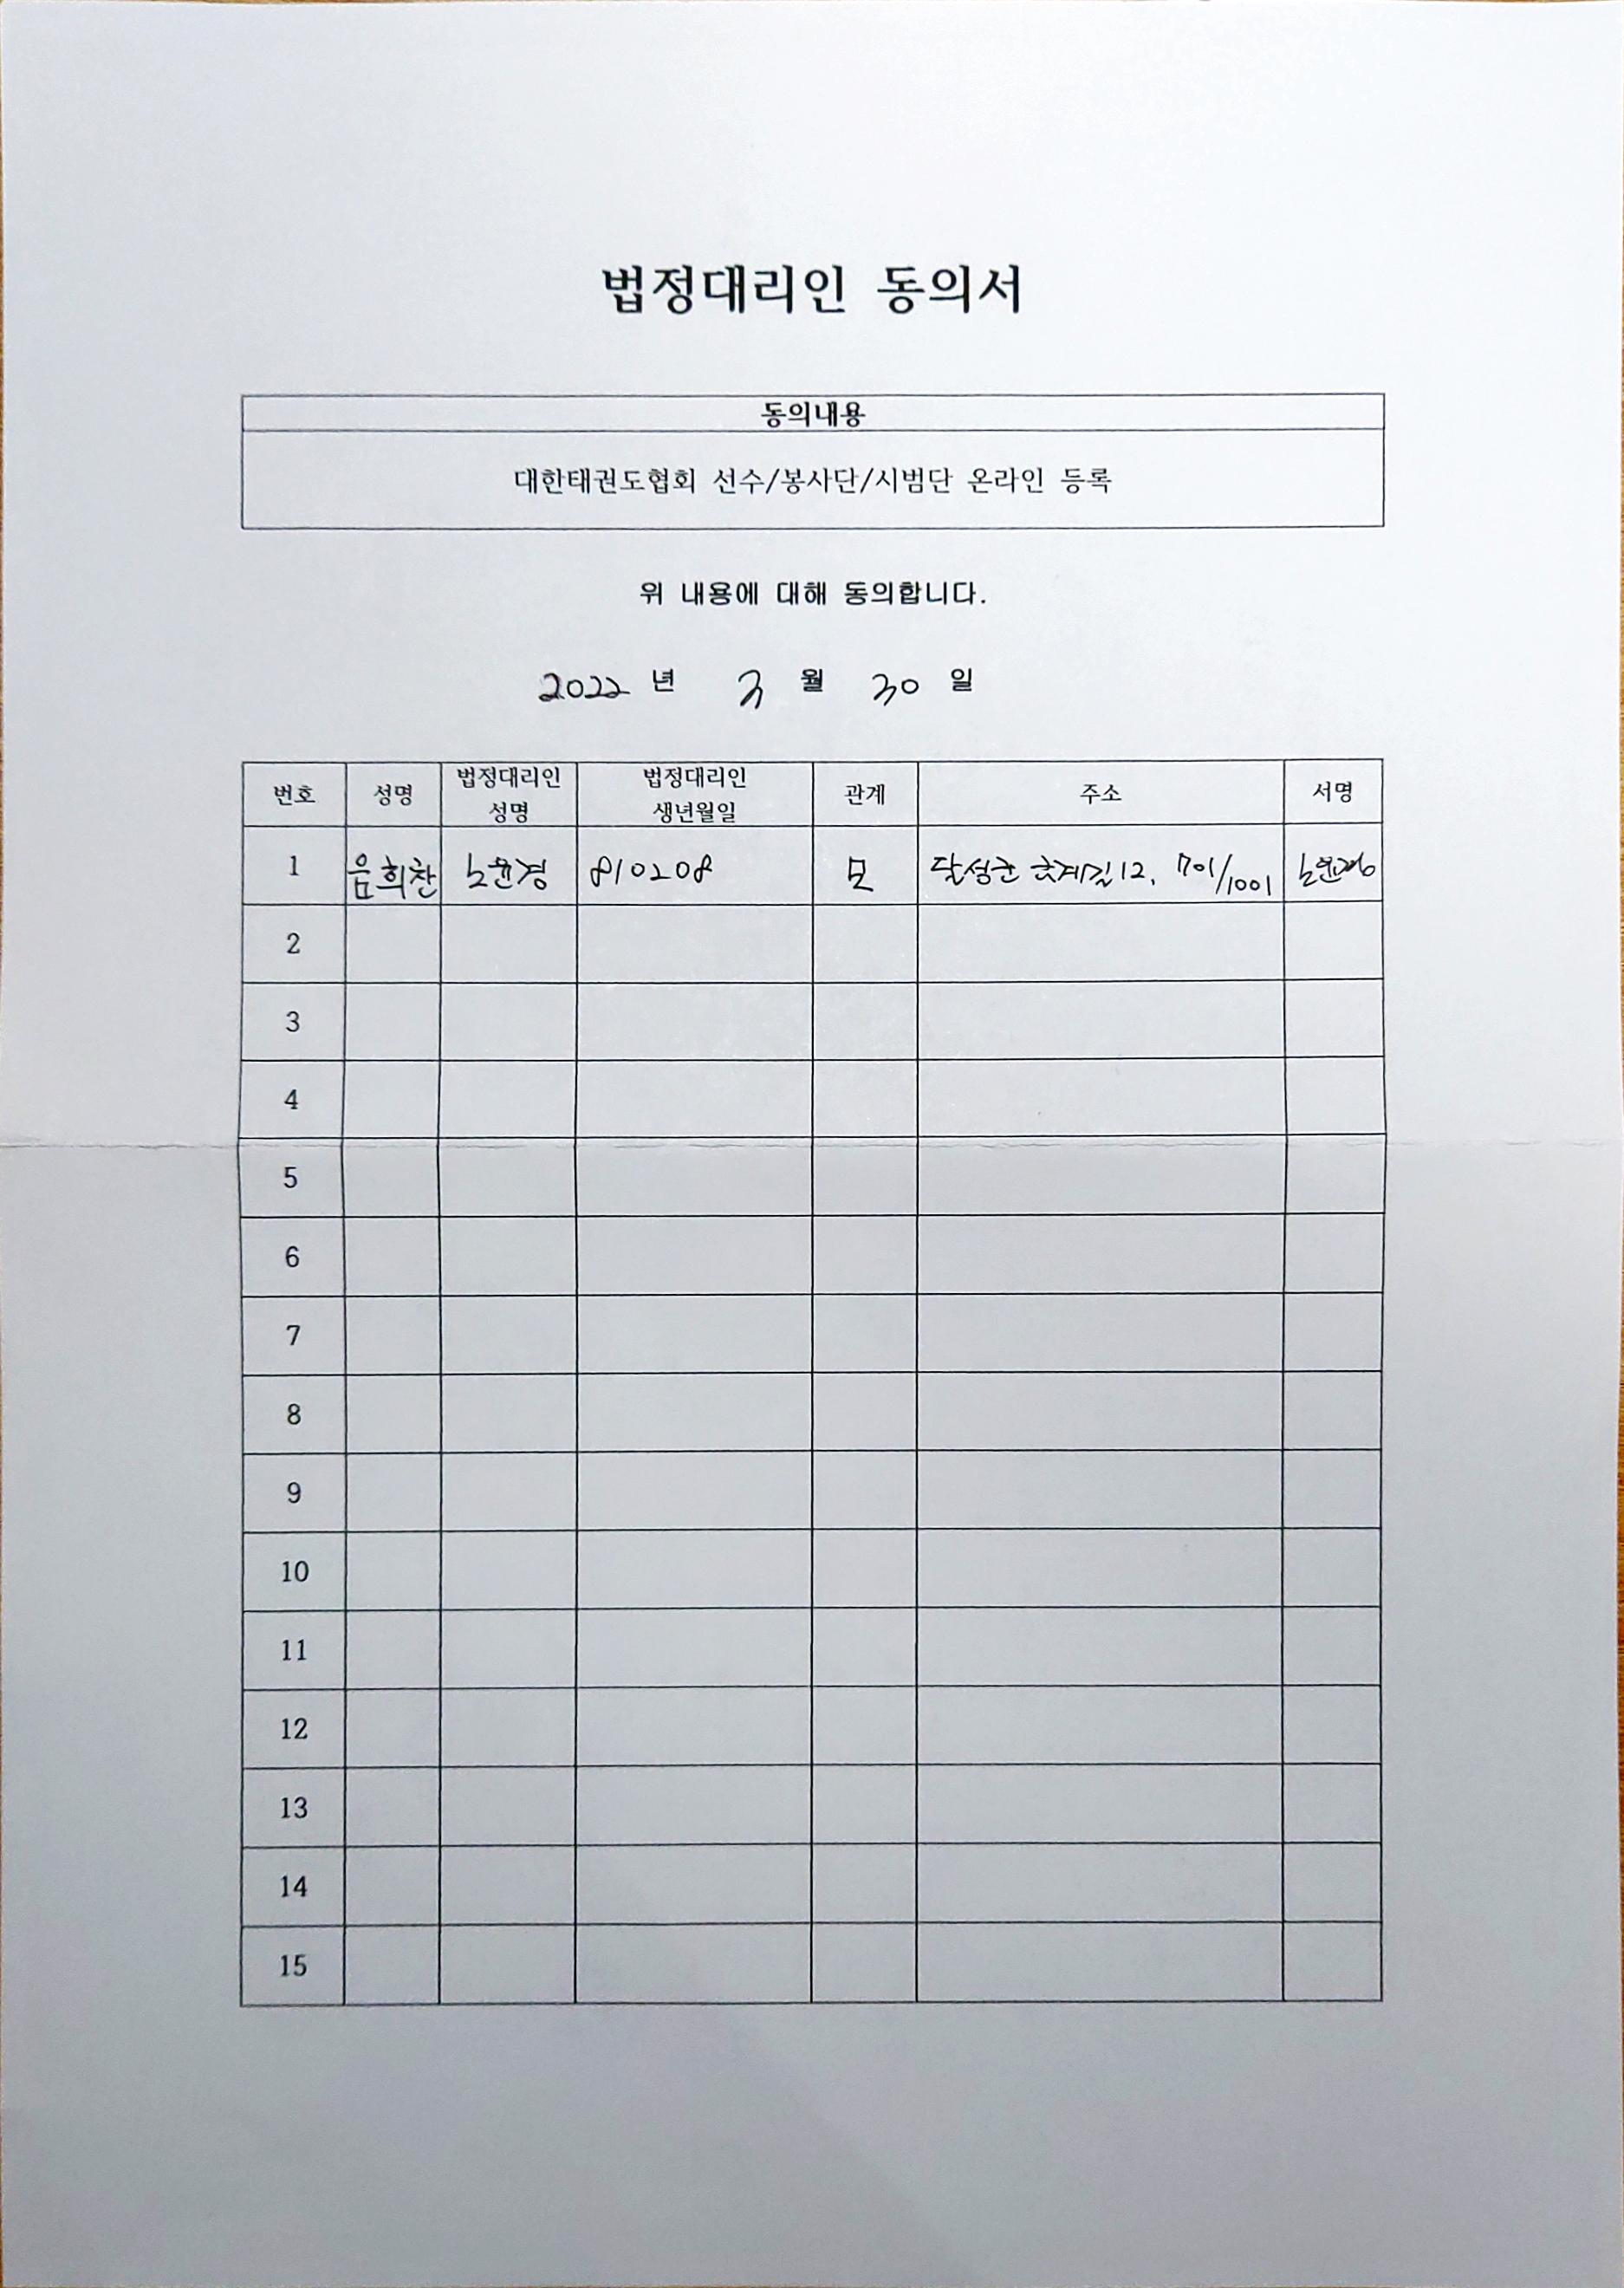 법정대리인 동의서
동의내용
대한태권도협회 선수/봉사단/시범단 온라인 등록
위 내용에 대해 동의합니다.
2022 년 3 월 30 일
번호 성명 법정대리인 성명 법정대리인 생년월일 관계 주소 서명
1 음희찬 노윤경 810208 모 달성군 12, 701/1001 노윤경
2
3
4
5
6
7
8
9
10
11
12
13
14
15